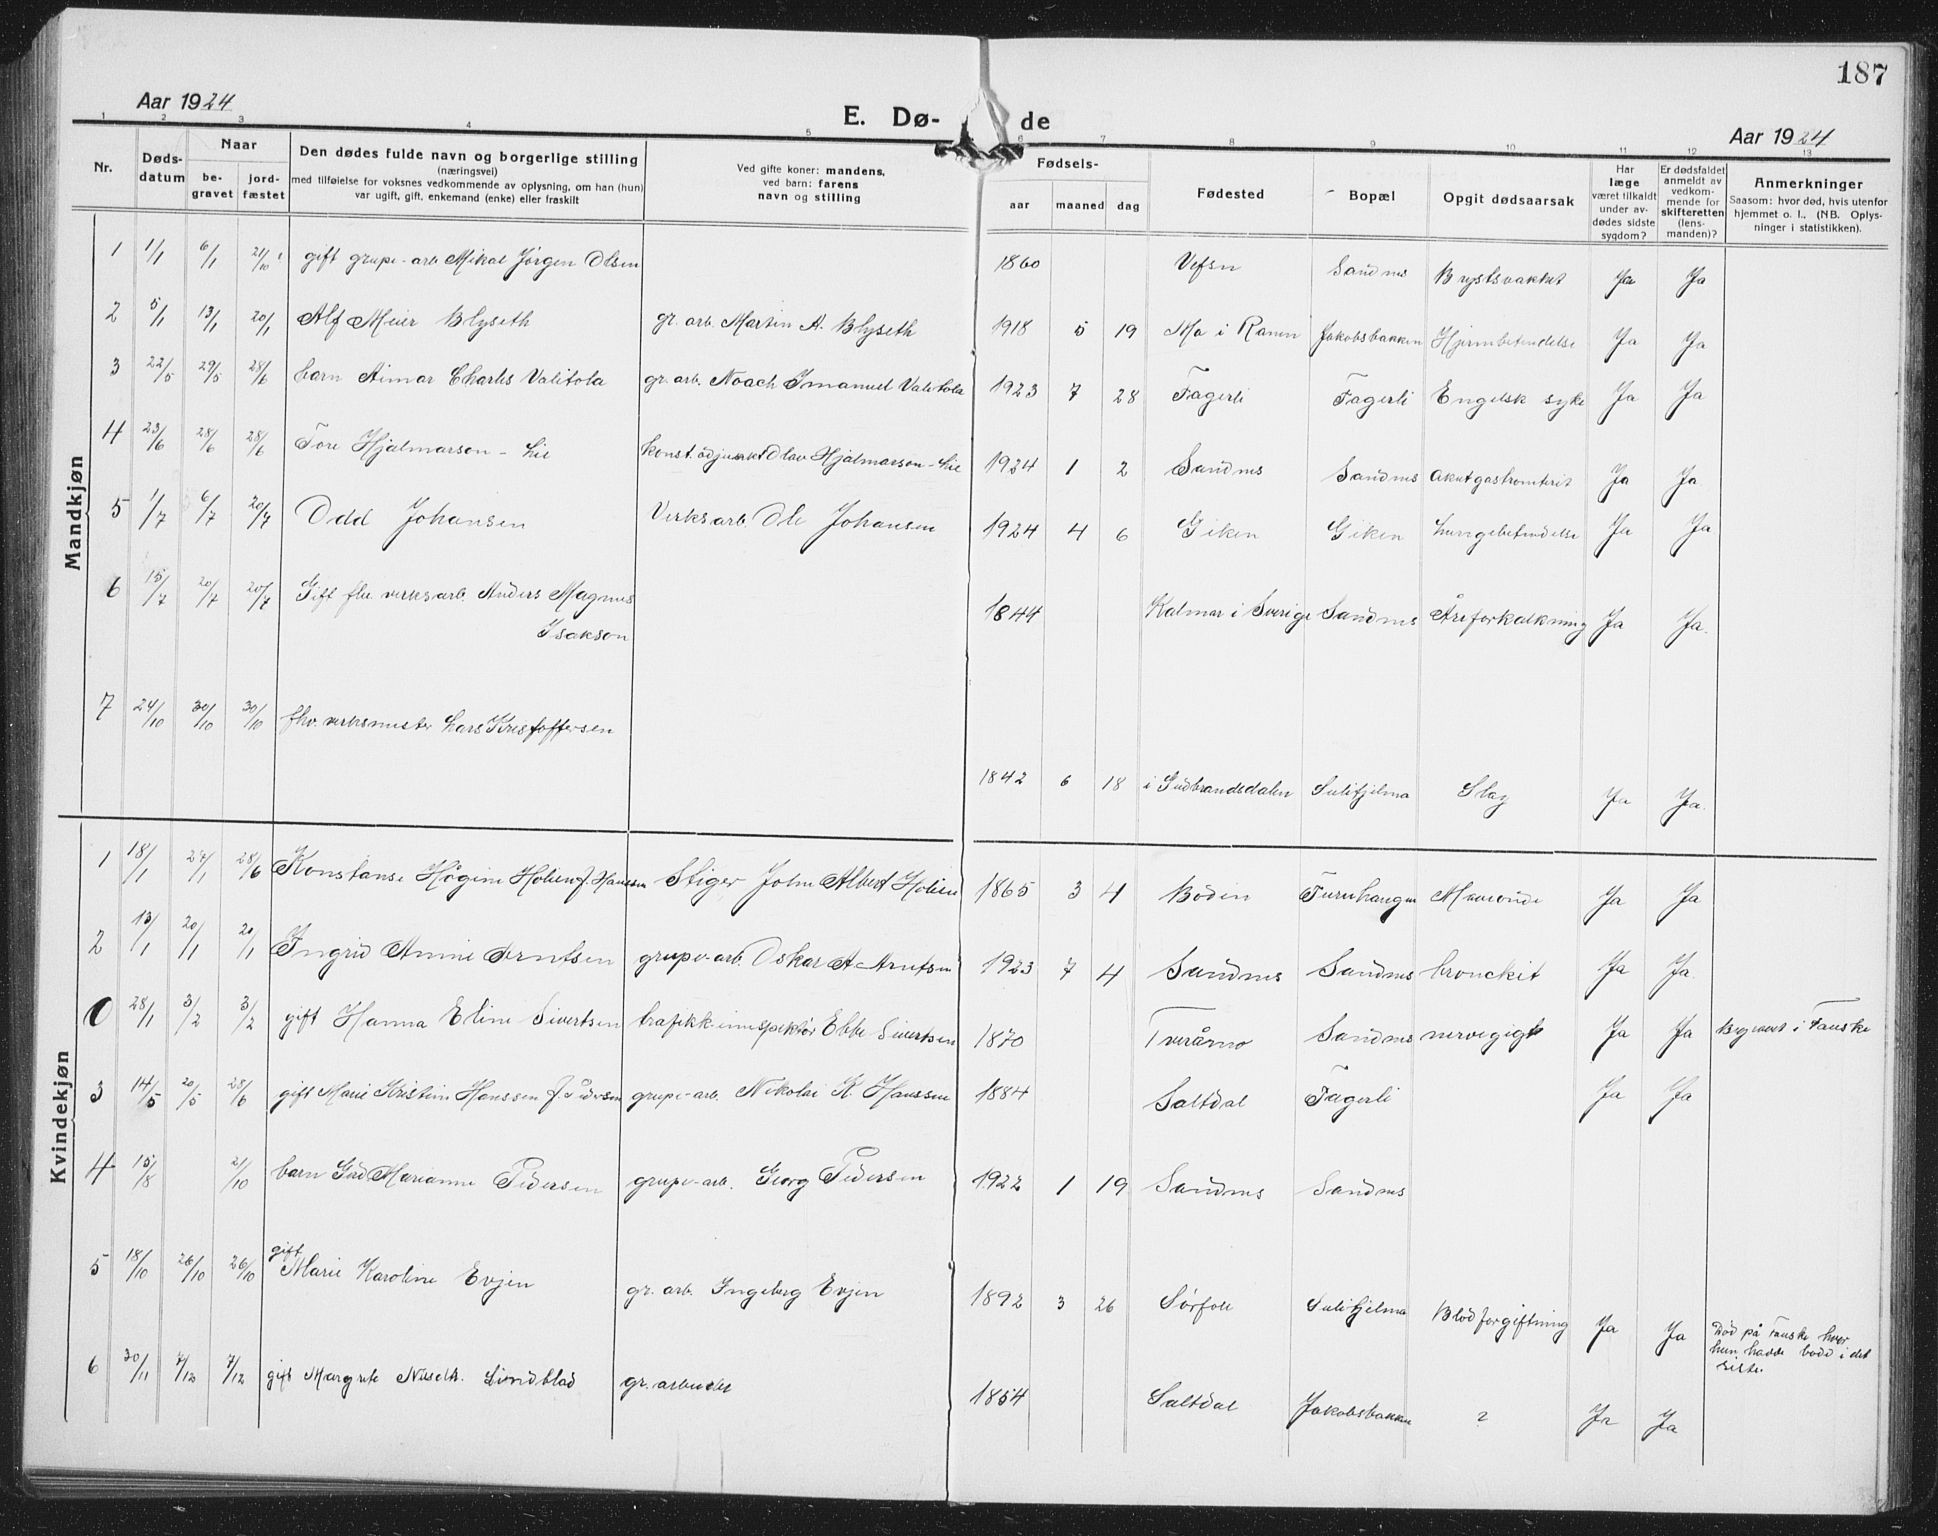 187
Aar 1924
E. Dø- de
Aar 1924
1 2 3 4 5 6 7 8 9 10 11 12 13
Nr.
Døds-
datum
Naar
be-
gravet
jord-
fæstet
Den dødes fulde navn og borgerlige stilling
(næringsvei)
med tilføielse for voksnes vedkommende av oplysning, om han (hun)
var ugift, gift, enkemand (enke) eller fraskilt
Ved gifte koner: mandens,
ved barn: farens
navn og stilling
Fødsels-
aar maaned dag
Fødested
Bopæl
Opgit dødsaarsak
Har
læge
været tilkaldt
under av-
dødes sidste
sygdom?
Er dødsfaldet
anmeldt av
vedkom-
mende for
skifteretten
(lens-
manden)?
Anmerkninger
Saasom: hvor død, hvis utenfor
hjemmet o. l., (NB. Oplys-
ninger i statistikken).
Mandkjøn
1 1/1 6/1 21/10 gift grupe-arb Mikal Jørgen Olsen 1860 Vefsn Sandnes Ja Ja
2 5/1 13/1 20/1 Alf Meier Blyseth gr. arb. Martin A. Blyseth 1918 5 19 Mo i Ranen Jakobsbakken Hjernebetendelse Ja Ja
3 22/5 29/5 28/6 barn Aimar Charles Valitola gr. arb. Noach Imanuel Valitola 1923 7 28 Fagerli Fagerli Engelsk syke Ja Ja
4 23/6 28/6 28/6 Tore Hjalmarson-Lie Olav Hjalmarson-Lie 1924 1 2 Sandnes Sandnes Ja Ja
5 1/7 6/7 20/7 Odd Johansen Verksarb. Ole Johansen 1924 4 6 Giken Giken Lungebetendelse Ja Ja
6 15/7 20/7 20/7 Gift fhv. verksarb. Anders Magnus
Isakson 1844 Kalmar i Sverige Sandnes Åreforkalkning Ja Ja.
7 24/10 30/10 30/10 fhv. verksmester Lars Kristoffersen
1842 6 18 i Gudbrandsdalen Sulitjelma Slag Ja Ja.
Kvindekjøn
1 18/1 27/1 28/6 Konstanse Hågine Holien f. Hanssen Stiger John Albert Holien 1865 3 4 Bodin Furuhaugen Mavesonde Ja Ja
2 13/1 20/1 20/1 Ingrid Annie Arntsen grupe-arb. Oskar A Arntsen 1923 7 4 Sandnes Sandnes bronckit Ja Ja
0 28/1 3/2 3/2 gift Hanna Eline Sivertsen trafikk-innspektør Ebbe Sivertsen 1870 Tveråmo Sandnes nervegigt Ja Ja Begravet i Fauske
3 14/5 20/5 28/6 gift Marie Kristine Hanssen f. Pedersen grupe-arb. Nikolai K. Hanssen 1884 Saltdal Fagerli Ja Ja
4 15/8 21/10 barn Gud Marianne Pedersen grupe-arb. Georg Pedersen 1922 1 19 Sandnes Sandnes
5 18/10 26/10 26/10 gift
Marie Karoline Evjen gr. arb. Ingeberg Evjen 1892 3 26 Sørfoll Sulitjelma Blodforgiftning Ja Ja Død på Fauske hvor
hun hadde bodd i det
siste.
6 30/11 7/12 7/12 gift Margrete Lindblad gr. arbeider 1854 Saltdal Jakobsbakken ? Ja Ja